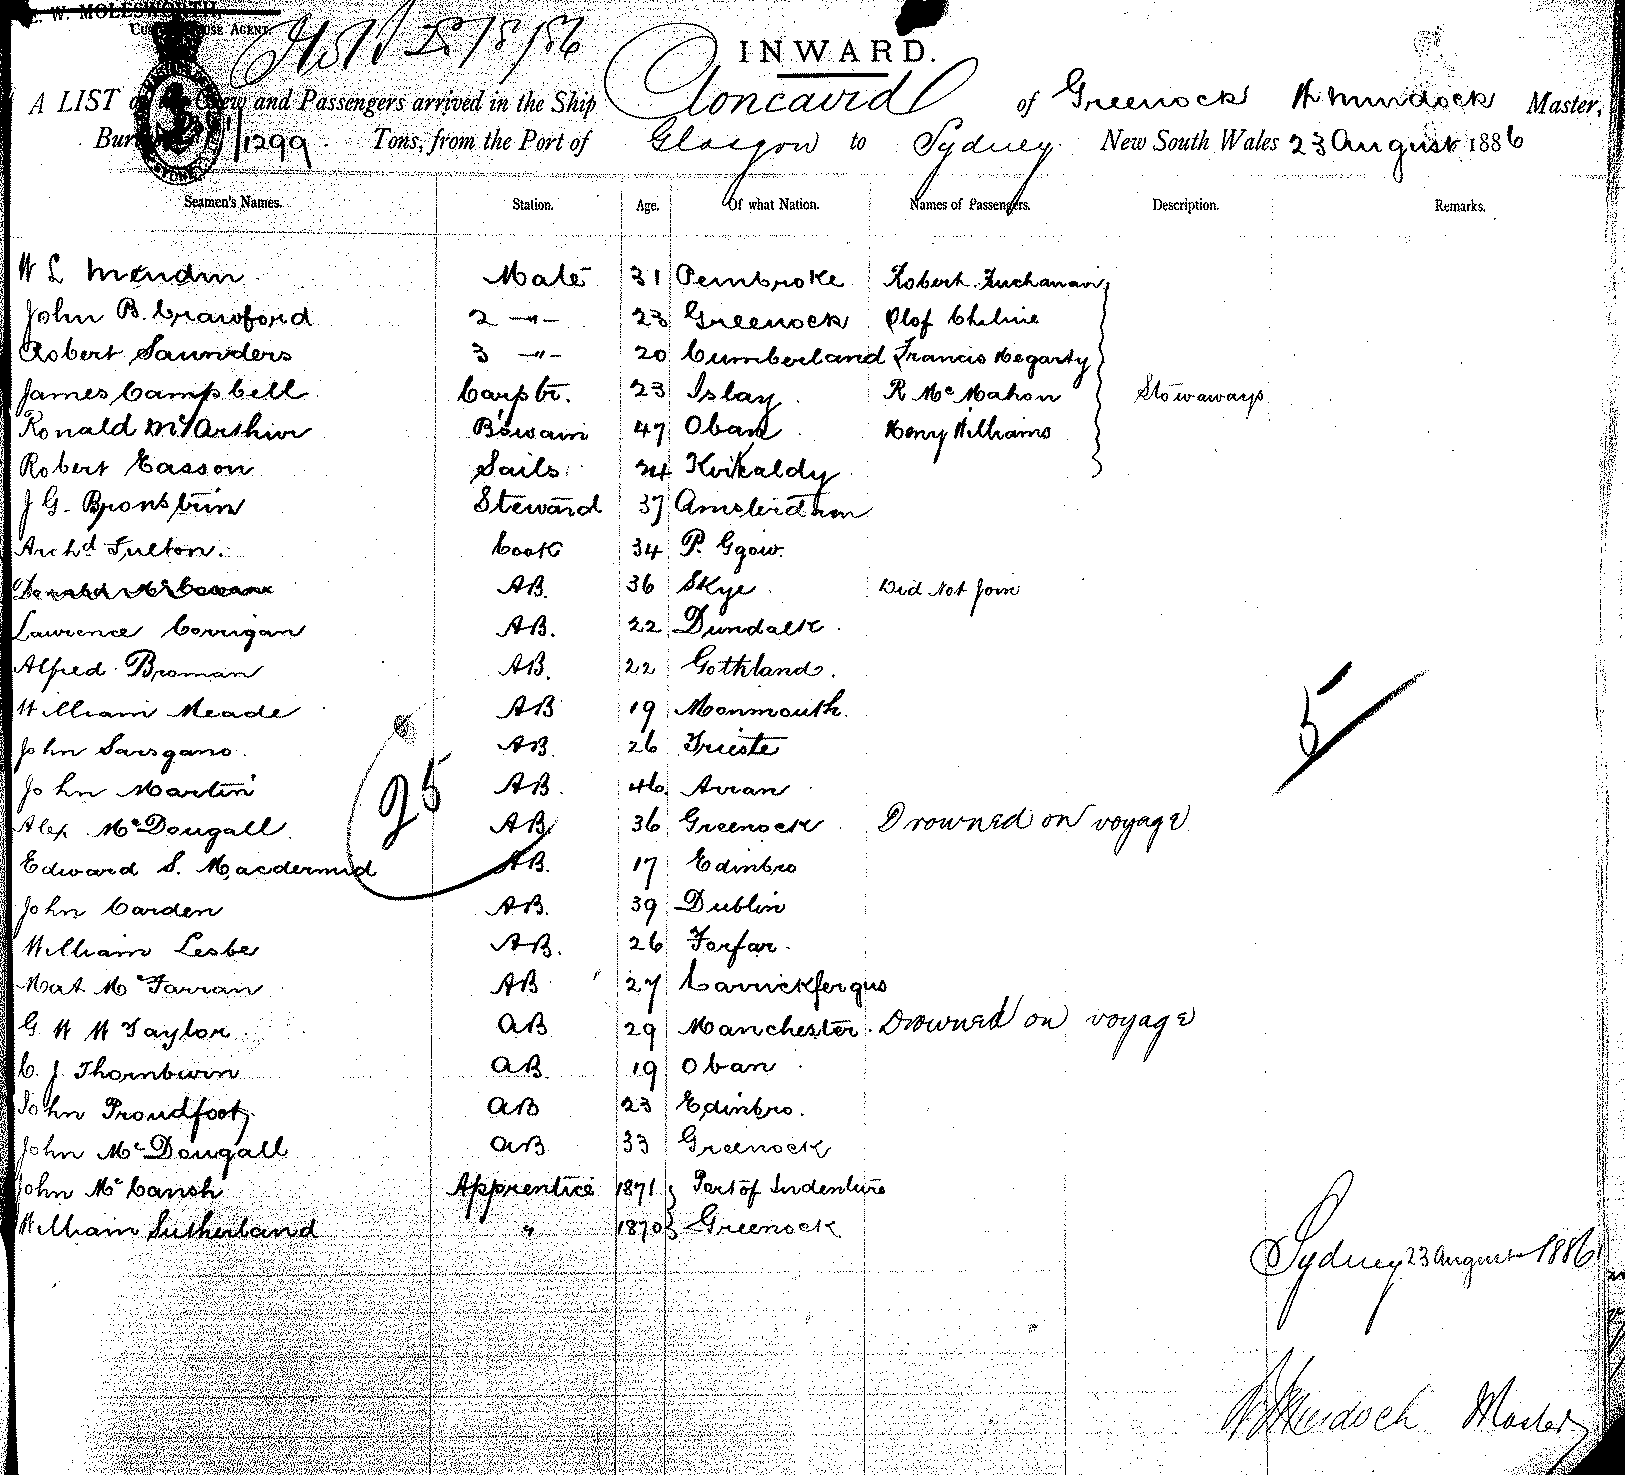 CUSTOM HOUSE AGENT.
INWARD.
A LIST of the Crew and Passengers arrived in the Ship Cloncaird of Greenock W Murdock Master,
1299 Tons, from the Port of Glasgow to Sydney New South Wales 23 August 1886
Seamen's Names. Station. Age. Of what Nation. Names of Passengers. Description. Remarks.
W L Mate 31 Pembroke Robert Buchanan
John B. Crawford 2 -"- 23 Greenock Olof
Robert Saunders 3 -"- 20 Cumberland Francis Hegarty
James Campbell Carptr. 23 Islay R McMahon Stowaways
Ronald McArthur Boswain 47 Oban Henry Williams
Robert Easson Sails 34 Kirkaldy
J G. Steward 37 Amsterdam
Archd Fulton. Cook 34 P. Ggow.
Donald AB. 36 Skye Did Not Join
Lawrence Corrigan AB. 22 Dundalk
Alfred Broman AB. 22 Gothland.
William Meade AB 19 Monmouth.
John Sarsgano. AB 26 Trieste
John Martin AB. 46 Arran
25
5
Alex McDougall AB 36 Greenock Drowned on voyage
Edward S. Macdermid AB. 17 Edinbro
John Carden AB. 39 Dublin
William AB. 26 Forfar.
Mat McFarran AB 27 Carrickfergus
G W W Taylor AB 29 Manchester. Drowned on voyage
C. J. AB 19 Oban
John Proudfoot AB 23 Edinbro.
John McDougall AB 33 Greenock
John McCansh Apprentice 1871 Port of Indenture
William Sutherland " 1870 Greenock
Sydney 23 August 1886
W Murdoch Master